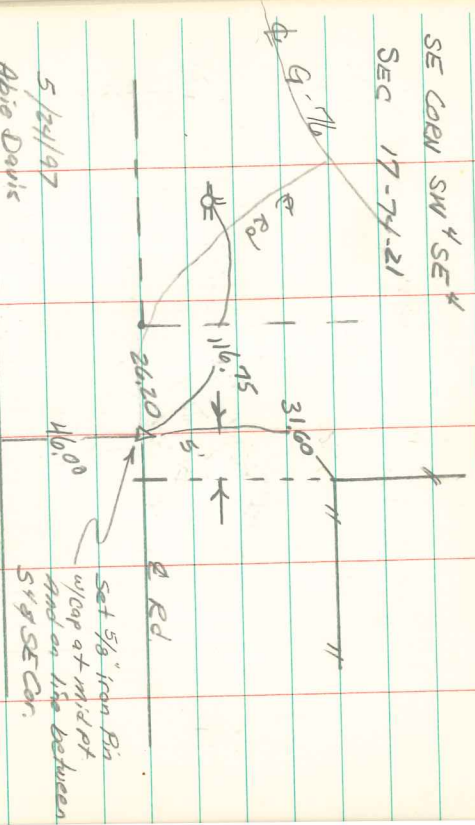 SE CORN SW 4 SE 4
SEC 17-74-21
℄ G-76
℄ Rd
116.75
31.60
26.20
5'
46.00
℄ Rd.
Set 5/8" iron Pin
w/cap at mid pt.
And on line between
S 4 & SE Cor.
5/21/97
Abie Davis